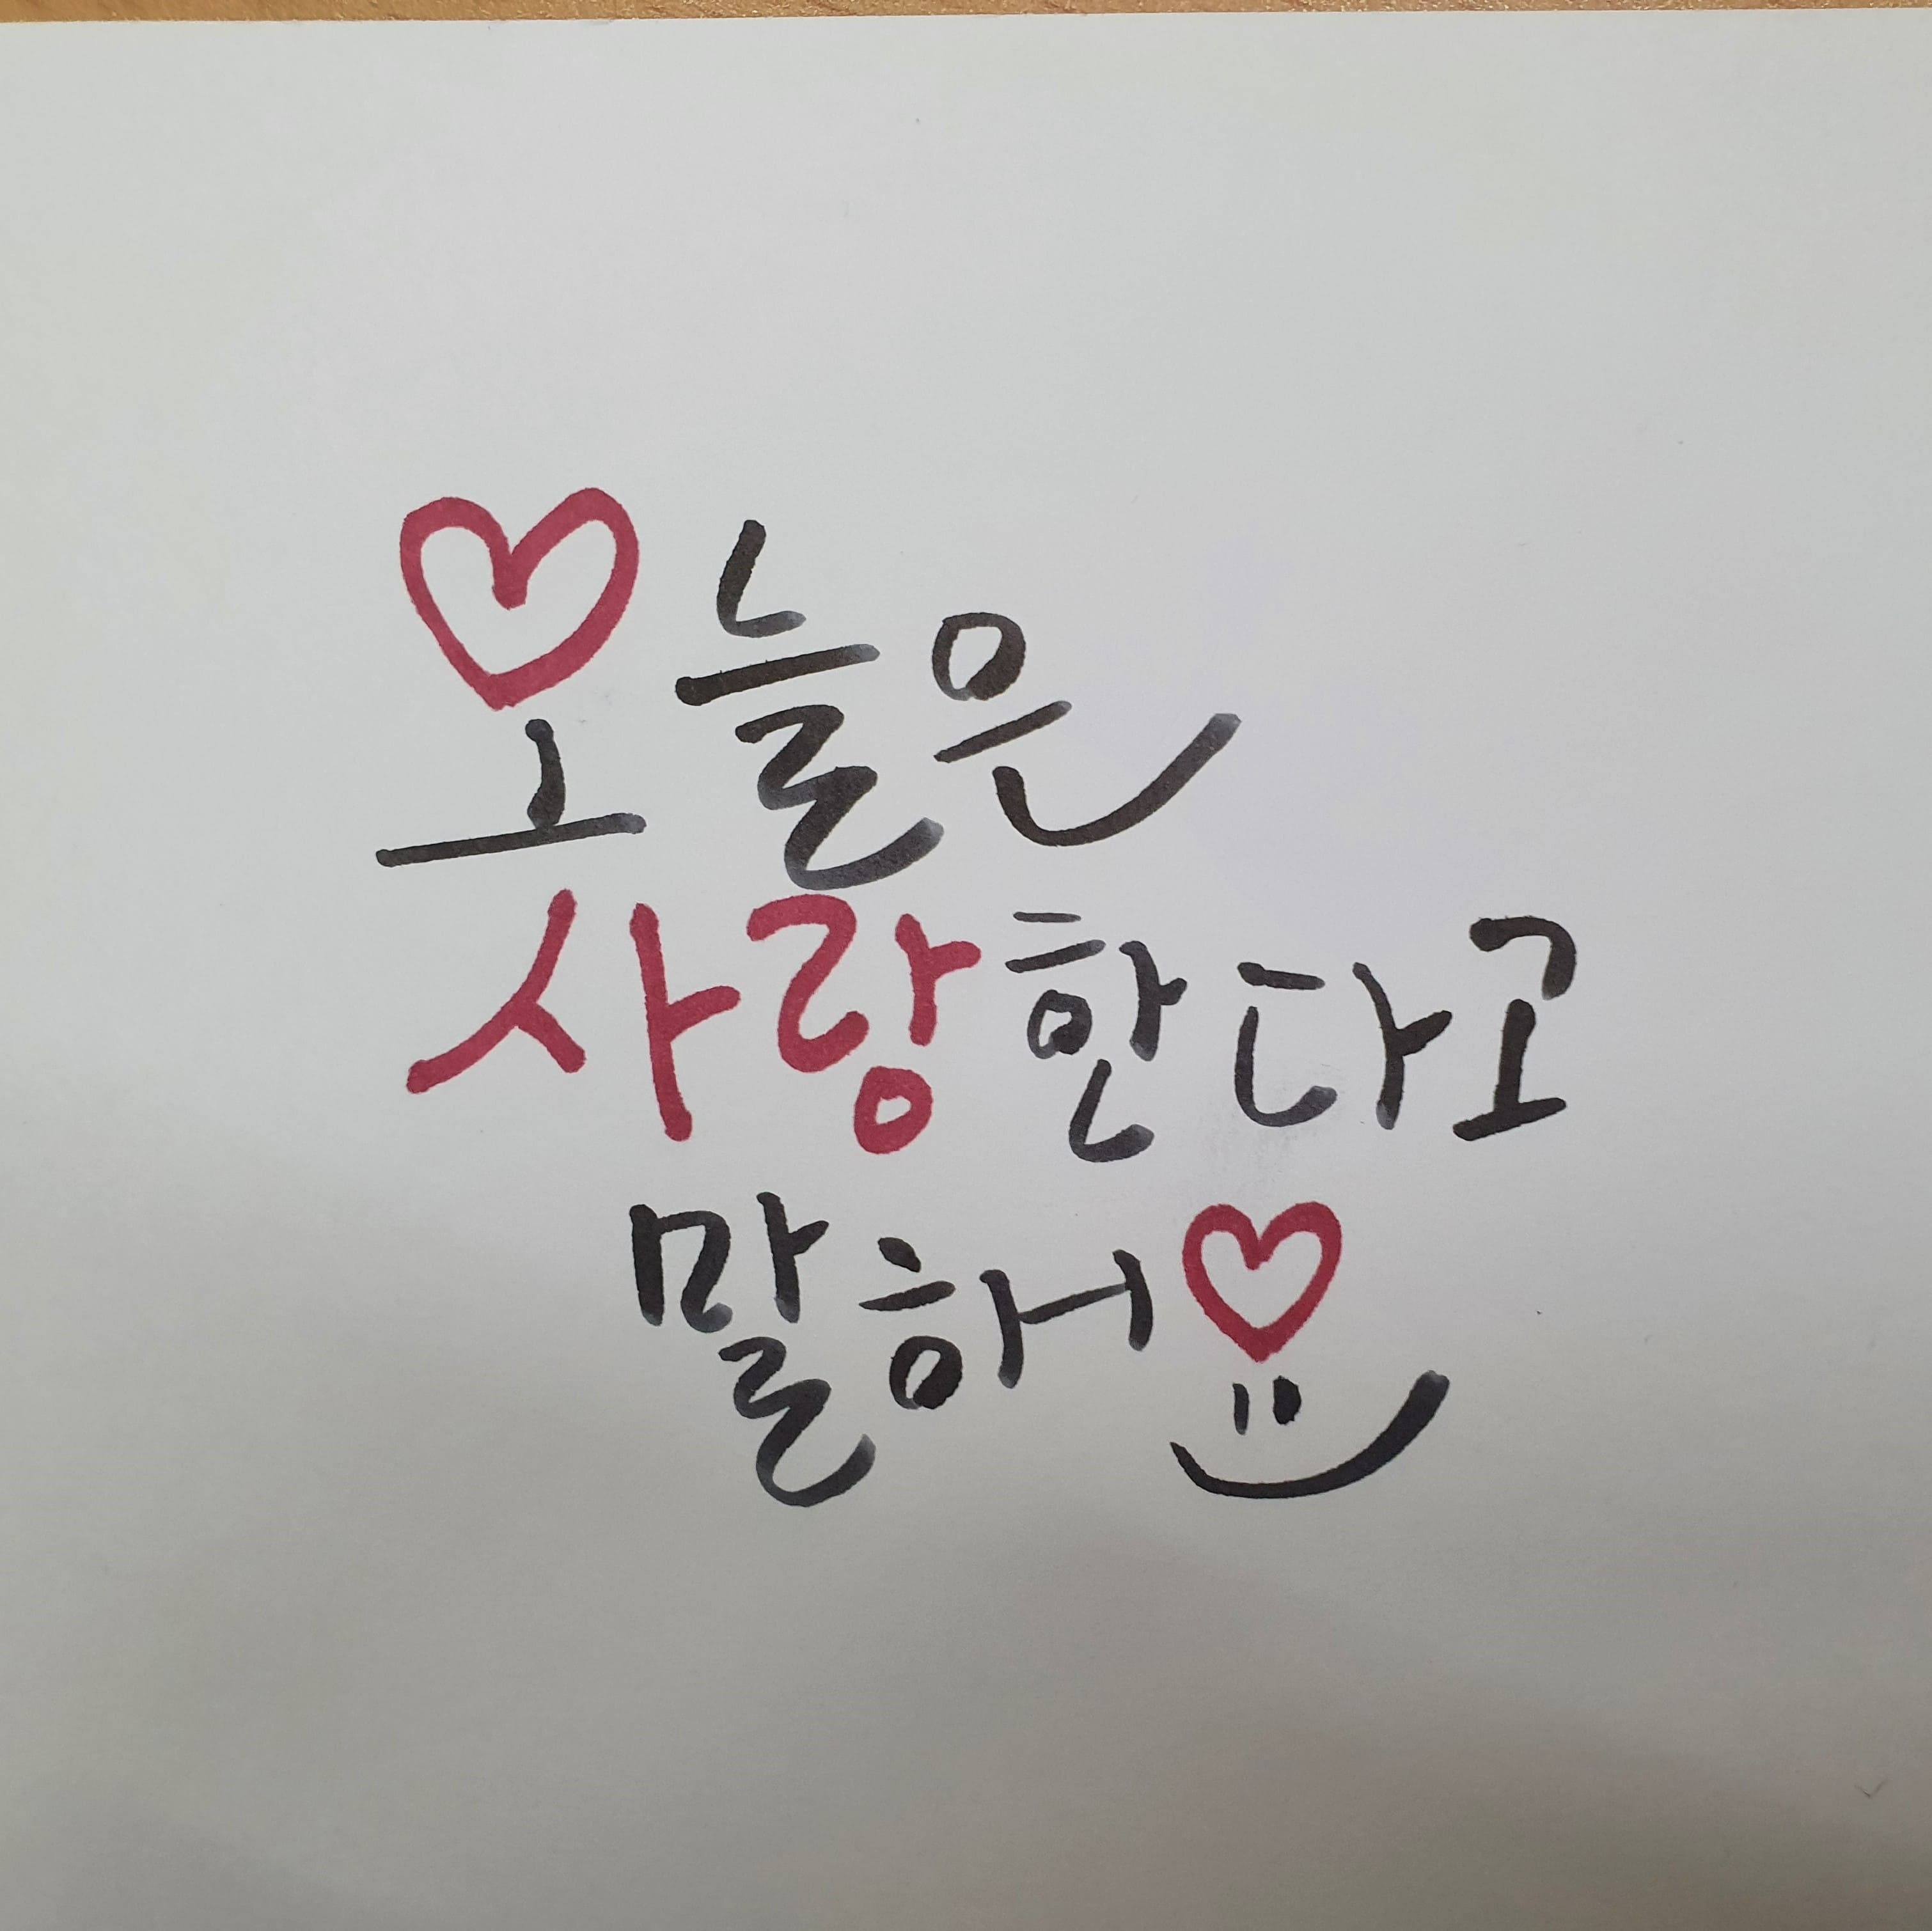 오늘은
사랑한다고
말해요